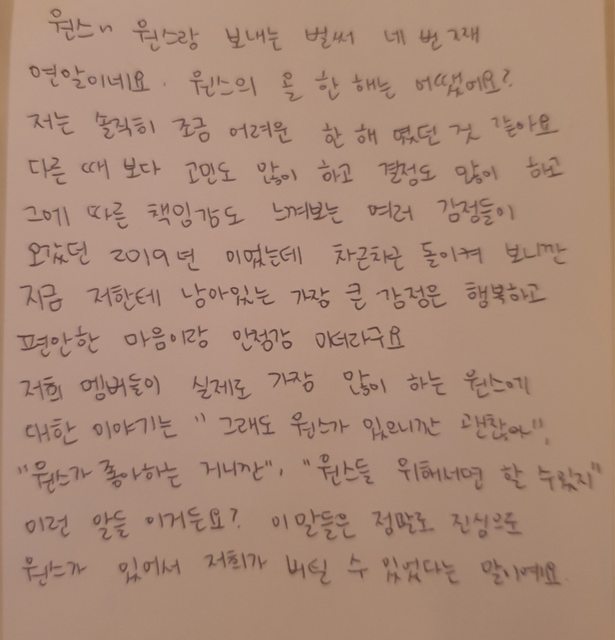 원스~ 원스랑 보내는 벌써 네 번째
연말이네요. 원스의 올 한 해는 어땠어요?
저는 솔직히 조금 어려운 한 해 였던 것 같아요
다른 때 보다 고민도 많이 하고 결정도 많이 하고
그에 따른 책임감도 느껴보는 여러 감정들이
오갔던 2019년 이었는데 차근차근 돌이켜 보니깐
지금 저한테 남아있는 가장 큰 감정은 행복하고
편안한 마음이랑 안정감 이더라구요
저희 멤버들이 실제로 가장 많이 하는 원스에
대한 이야기는 "그래도 원스가 있으니깐 괜찮아",
"원스가 좋아하는 거니깐", "원스들 위해서면 할 수있지"
이런 말들 이거든요? 이 말들은 정말로 진심으로
원스가 있어서 저희가 버틸 수 있었다는 말이에요.